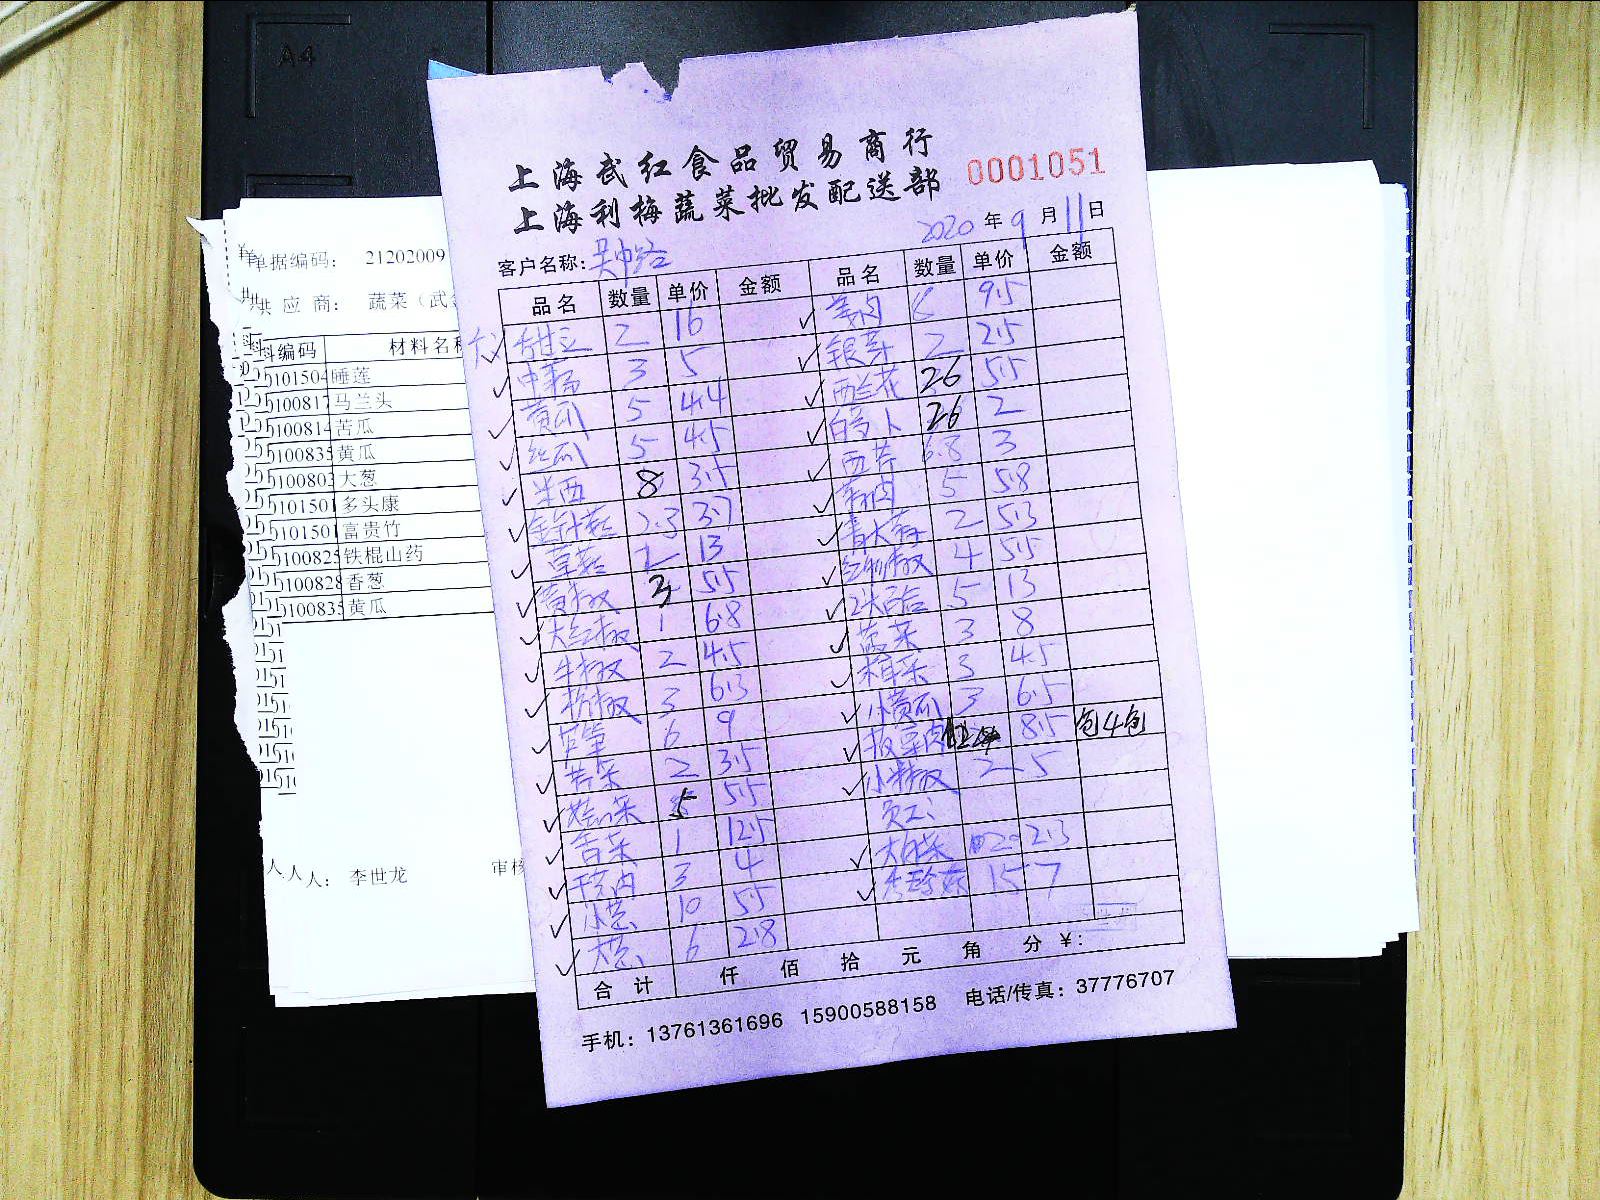 A4
上海武红食品贸易商行
上海利梅蔬菜批发配送部
0001051
2020年9月11日
客户名称:吴中路
品名 数量 单价 金额 品名 数量 单价 金额
甜豆 2 16 姜肉 6 9.5
3 5 银芽 2 2.5
黄瓜 5 4.4 西兰花 26 5.5
丝瓜 5 4.5 白萝卜 26 2
8 3.5 西芹 6.8 3
金针菇 2.3 3.7 5 5.8
草菇 2 13 青大蒜 2 5.3
黄椒 3 5.5 4 5.5
大红椒 1 6.8 5 13
牛椒 2 4.5 3 8
3 6.3 3 4.5
6 9 小黄瓜 3 6.5
苦菜 2 3.5 板栗肉 8.5 包4包
5 5.5 小米椒 2 5
1 12.5 员工:
3 4 大白菜 20 2.3
小葱 10 5.5 杏鲍菇 15 7
大葱 6 2.8
合计 仟 佰 拾 元 角 分 ¥:
手机: 13761361696 15900588158 电话/传真: 37776707
单据编码: 21202009
供应商: 蔬菜(武
料编码 材料名称
0101504 睡莲
100817 马兰头
100814 苦瓜
100835 黄瓜
100803 大葱
101501 多头康
101501 富贵竹
100825 铁棍山药
100828 香葱
100835 黄瓜
人: 李世龙 审核